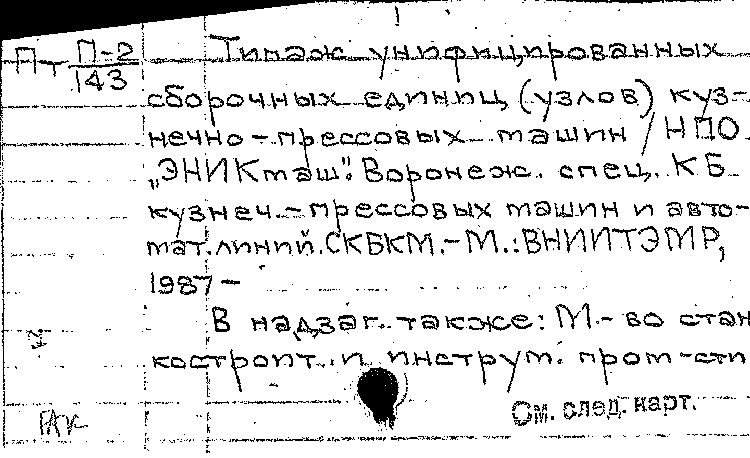 Пт П-2/143
Типаж унифицированных
сборочных единиц (узлов) куз-
нечно-прессовых машин / НПО
„ЭНИКмаш". Воронеж. спец. КБ
кузнеч.-прессовых машин и авто-
мат. линий. СКБКМ. - М.: ВНИИТЭМР,
1987 -
В надзаг. также: М-во стан
костроит. и инструм. пром-сти
См. след. карт.